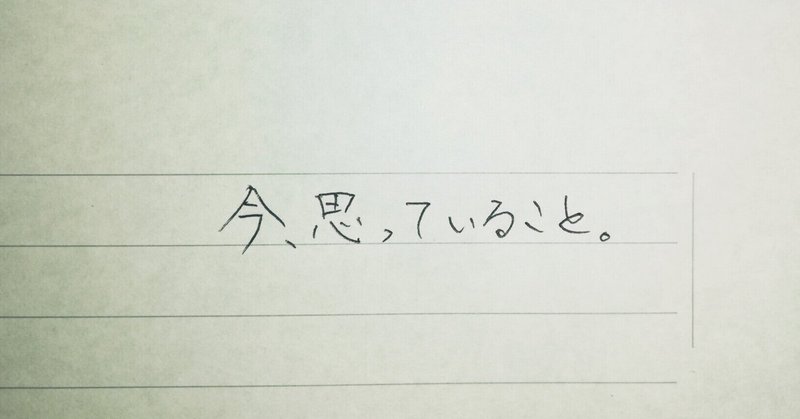 今、思っていること。